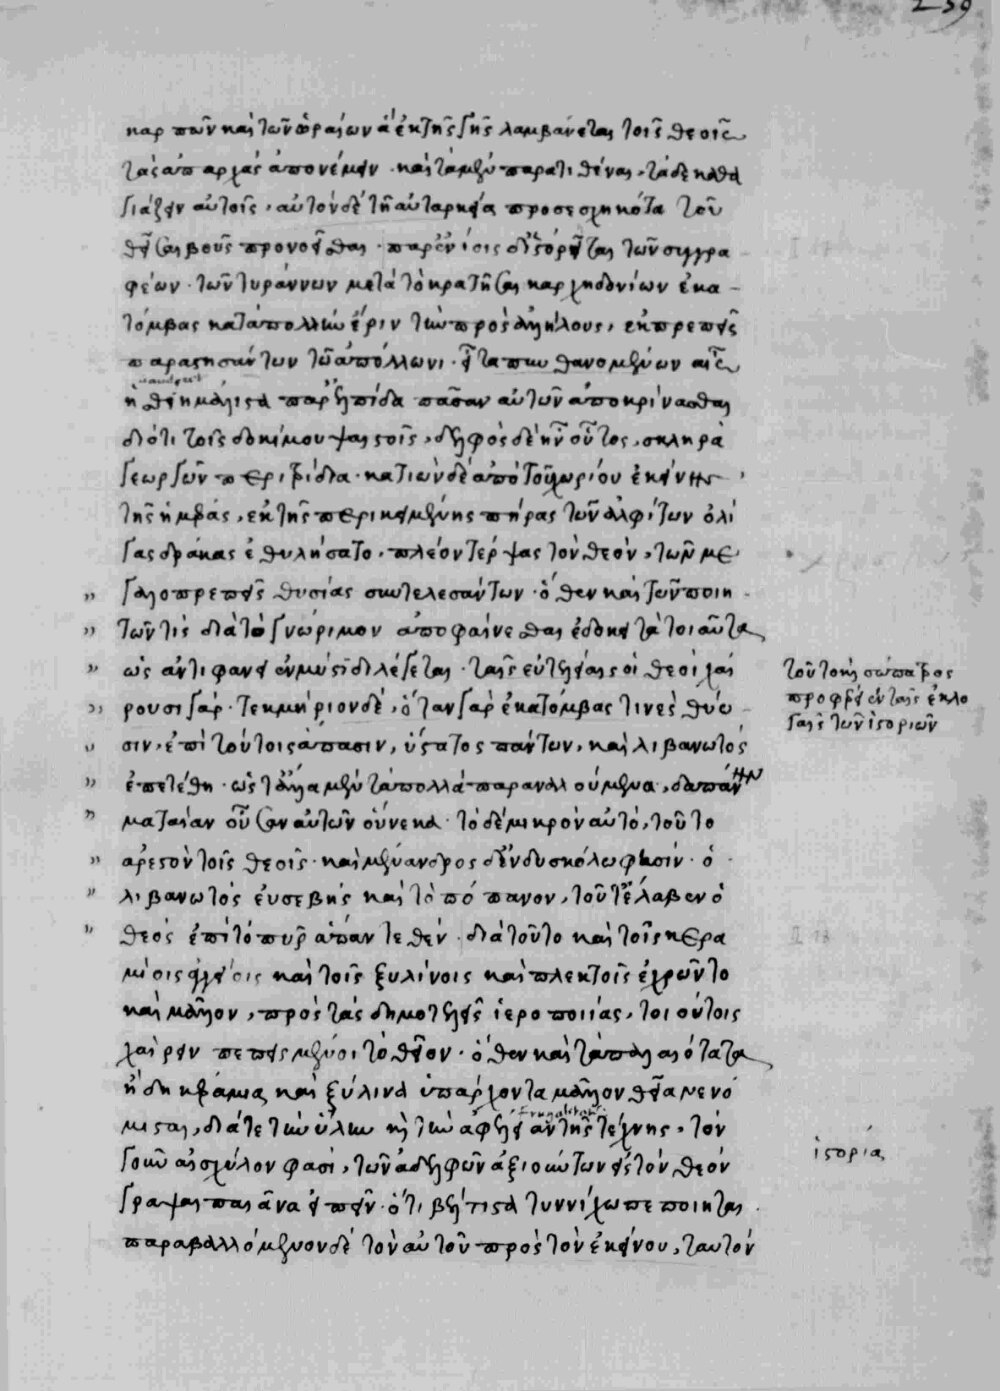 259
καρπῶν καὶ τῶν ὡραίων ἃ ἐκ τῆς γῆς λαμβάνεται τοῖς θεοῖς
τὰς ἀπαρχὰς ἀπονέμειν · καὶ τὰ μὲν παρατιθέναι, τὰ δὲ καθα
γιάζειν αὐτοῖς, αὐτὸν δὲ τῇ αὐταρκείᾳ προσεσχηκότα τοῦ
θῦσαι βοῦς προνοεῖσθαι · παρ' ἐνίοις δ' ἱστόρηται τῶν συγγρα
φέων · τῶν τυράννων μετὰ τὸ κρατῆσαι καρχηδονίων ἑκα
τόμβας κατὰ πολλὴν ἔριν τὴν πρὸς ἀλλήλους, ἐκπρεπεῖς
παραστησάντων τῷ ἀπόλλωνι · εἶτα πυνθανομένων αἷς
ἡσθείη μάλιστα παρ' ἐλπίδα πᾶσαν αὐτῶν ἀποκρίνασθαι
διότι τοῖς δοκίμου ψαιστοῖς, δελφὸς δὲ ἦν οὗτος, σκληρὰ
γεωργῶν πετρίδια · κατιὼν δὲ ἀπὸ τοῦ χωρίου ἐκείνης
τῆς ἡμέρας, ἐκ τῆς περικειμένης πήρας τῶν ἀλφίτων ὀλί
γας δράκας ἐθυλήσατο, πλέον τέρψας τὸν θεὸν, τῶν με
γαλοπρεπεῖς θυσίας συντελεσάντων · ὅθεν καὶ τῶν ποιη
τῶν τισὶ διὰ τὸ γνώριμον ἀποφαίνεσθαι ἐδόκει τὰ τοιαῦτα
ὡς ἀντιφάνει ἐν μύστιδι λέγεται · ταῖς εὐτελείαις οἱ θεοὶ χαί
ρουσι γάρ · τεκμήριον δέ, ὅταν γὰρ ἑκατόμβας τινὲς θύω
σιν, ἐπὶ τούτοις ἅπασιν, ὕστατος πάντων, καὶ λιβανωτὸς
ἐπετέθη · ὡς τἆλλα μὲν τὰ πολλὰ παραναλούμενα, δαπάνην
ματαίαν οὖσαν αὐτῶν οὕνεκα · τὸ δὲ μικρὸν αὐτό, τοῦτο
ἀρεστὸν τοῖς θεοῖς · καὶ μένανδρος δ' ἐν δυσκόλῳ φησίν · ὁ
λιβανωτὸς εὐσεβὴς καὶ τὸ πόπανον, τοῦτ' ἔλαβεν ὁ
θεὸς ἐπὶ τὸ πῦρ ἅπαν τεθέν · διὰ τοῦτο καὶ τοῖς κερα
μίοις ἀγγείοις καὶ τοῖς ξυλίνοις καὶ πλεκτοῖς ἐχρῶντο
καὶ μᾶλλον, πρὸς τὰς δημοτελεῖς ἱεροποιίας, τοιούτοις
χαίρειν πεπεισμένοι τὸ θεῖον · ὅθεν καὶ τὰ παλαιότατα
ἤδη κεράμια καὶ ξύλινα ὑπάρχοντα μᾶλλον θεῖα νενό
μισται, διά τε τὴν ὕλην καὶ τὴν ἀφέλειαν τῆς τέχνης, τὸν
γοῦν αἰσχύλον φασί, τῶν ἀδελφῶν ἀξιούντων εἰς τὸν θεὸν
γράψαι παιᾶνα εἰπεῖν · ὅτι βέλτιστα τυννίχῳ πεποίηται
παραβαλλόμενον δὲ τὸν αὐτοῦ πρὸς τὸν ἐκείνου, ταυτὸν
τοῦτο καὶ σώπατρος
προφέρει ἐν ταῖς ἐκλο
γαῖς τῶν ἱστοριῶν
ἱστορία